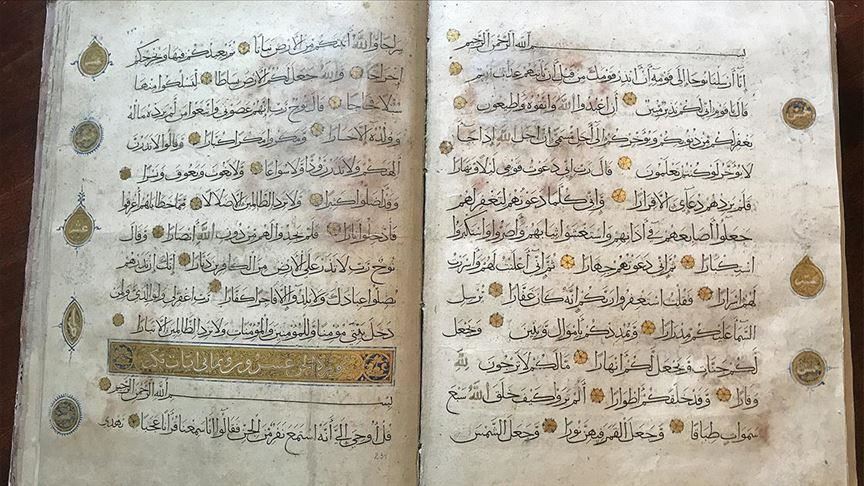 بسم الله الرحمن الرحيم
إنا أرسلنا نوحا إلى قومه أن أنذر قومك من قبل أن يأتيهم عذاب أليم
قال يا قوم إني لكم نذير مبين أن اعبدوا الله واتقوه وأطيعون
يغفر لكم من ذنوبكم ويؤخركم إلى أجل مسمى إن أجل الله إذا جاء
لا يؤخر لو كنتم تعلمون قال رب إني دعوت قومي ليلا ونهارا
فلم يزدهم دعاءي إلا فرارا وإني كلما دعوتهم لتغفر لهم
جعلوا أصابعهم في آذانهم واستغشوا ثيابهم وأصروا واستكبروا
استكبارا ثم إني دعوتهم جهارا ثم إني أعلنت لهم وأسررت
لهم إسرارا فقلت استغفروا ربكم إنه كان غفارا يرسل
السماء عليكم مدرارا ويمددكم بأموال وبنين ويجعل
لكم جنات ويجعل لكم أنهارا مالكم لا ترجون لله
وقارا وقد خلقكم أطوارا ألم تروا كيف خلق الله سبع
سموات طباقا وجعل القمر فيهن نورا وجعل الشمس
خمس
خمس
سراجا والله أنبتكم من الأرض نباتا ثم يعيدكم فيها ويخرجكم
إخراجا والله جعل لكم الأرض بساطا لتسلكوا منها
سبلا فجاجا قال نوح رب إنهم عصوني واتبعوا من لم يزده ماله
وولده إلا خسارا ومكروا مكرا كبارا وقالوا لا تذرن
آلهتكم ولا تذرن ودا ولا سواعا ولا يغوث ويعوق ونسرا
وقد أضلوا كثيرا ولا تزد الظالمين إلا ضلالا مما خطاياهم أغرقوا
فأدخلوا نارا فلم يجدوا لهم من دون الله أنصارا وقال
نوح رب لا تذر على الأرض من الكافرين ديارا إنك إن تذرهم
يضلوا عبادك ولا يلدوا إلا فاجرا كفارا رب اغفر لي ولوالدي ولمن
دخل بيتي مؤمنا وللمؤمنين والمؤمنات ولا تزد الظالمين إلا تبارا
بسم الله الرحمن الرحيم
قل أوحي إلي أنه استمع نفر من الجن فقالوا إنا سمعنا قرآنا عجبا يهدي
خمس
عشر